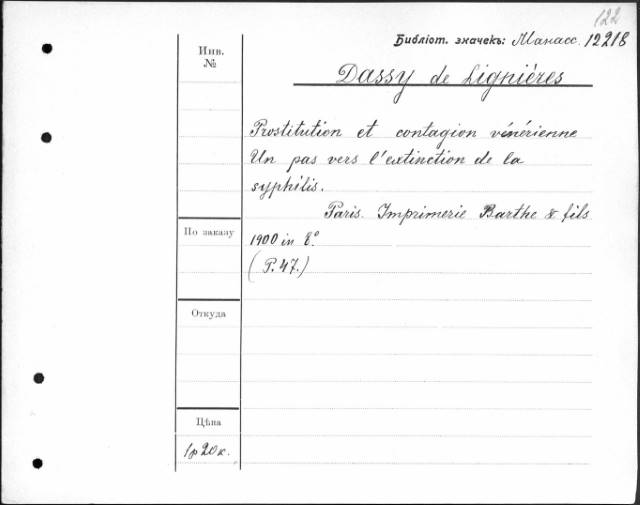 122
Библіот. значекъ: Манасс. 12218
Инв.
№
Dassy de Lignières
Prostitution et contagion vénérienne
Un pas vers l'extinction de la
syphilis.
Paris. Imprimerie Barthe & fils
По заказу
1900 in 8.°
(P. 47.)
Откуда
Цѣна
1р 20к.